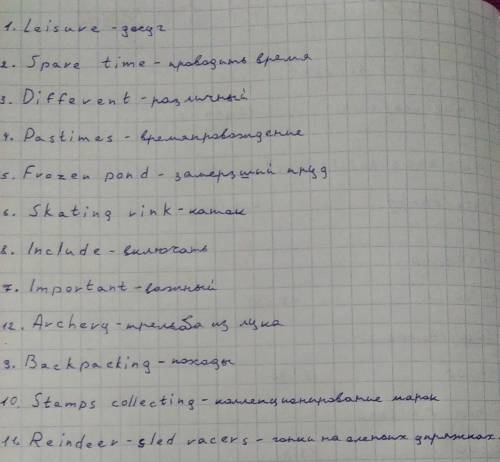 1. Leisure - досуг
2. Spare time - проводить время
3. Different - различный
4. Pastimes - времяпровождение
5. Frozen pond - замерзший пруд
6. Skating rink - каток
8. Include - включать
7. Important - важный
12. Archery - стрельба из лука
9. Backpacking - походы
10. Stamps collecting - коллекционирование марок
11. Reindeer - sled racers - гонки на оленьих упряжках.